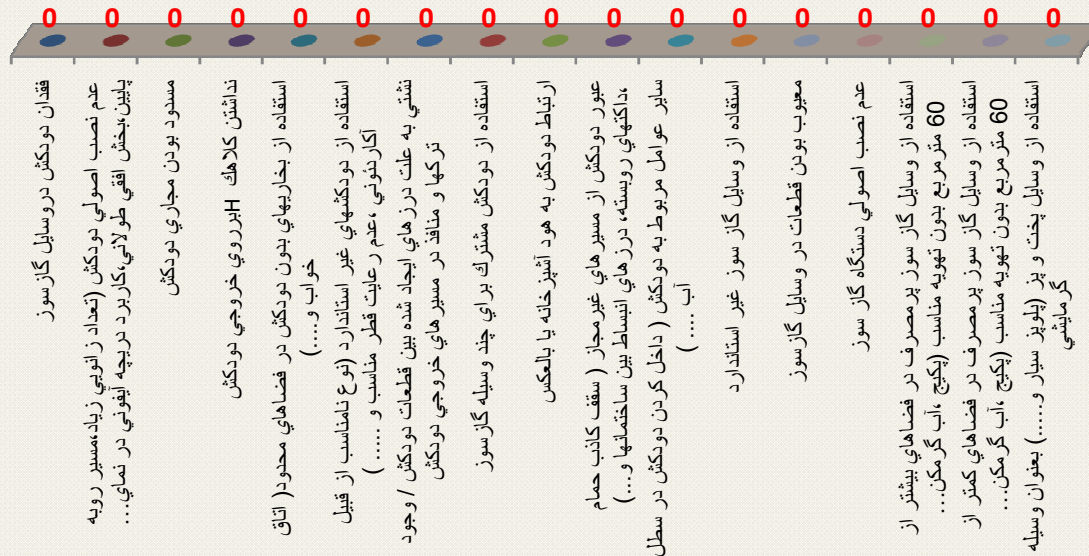 0 0 0 0 0 0 0 0 0 0 0 0 0 0 0 0 0
فقدان دودکش دروسایل گازسوز
عدم نصب اصولي دودکش (تعداد زانويي زياد،مسير روبه
پايين،بخش افقي طولاني،کاربرد دريچه آيفوني در نماي...
مسدود بودن مجاري دودکش
نداشتن کلاهك Hبرروي خروجي دودکش
استفاده از بخاريهاي بدون دودکش در فضاهاي محدود( اتاق
خواب و....)
استفاده از دودکشهاي غير استاندارد (نوع نامناسب از قبيل
آکاردئوني ،عدم رعايت قطر مناسب و ..... )
نشتي به علت درزهاي ايجاد شده بين قطعات دودکش / وجود
ترکها و منافذ در مسيرهاي خروجي دودکش
استفاده از دودکش مشترك براي چند وسيله گازسوز
ارتباط دودکش به هود آشپزخانه يا بالعکس
عبور دودکش از مسيرهاي غيرمجاز ( سقف کاذب حمام
،داکتهاي روبسته، درزهاي انبساط بين ساختمانها و....)
ساير عوامل مربوط به دودکش ( داخل کردن دودکش در سطل
آب .... )
استفاده از وسايل گاز سوز غير استاندارد
معيوب بودن قطعات در وسايل گازسوز
عدم نصب اصولي دستگاه گاز سوز
استفاده از وسايل گاز سوز پرمصرف در فضاهاي بيشتر از
60 مترمربع بدون تهويه مناسب (پکيج ،آب گرمکن...
استفاده از وسايل گاز سوز پرمصرف در فضاهاي کمتر از
60 مترمربع بدون تهويه مناسب (پکيج ،آب گرمکن...
استفاده از وسايل پخت و پز (پلوپز سيار و.....) بعنوان وسيله
گرمايشي